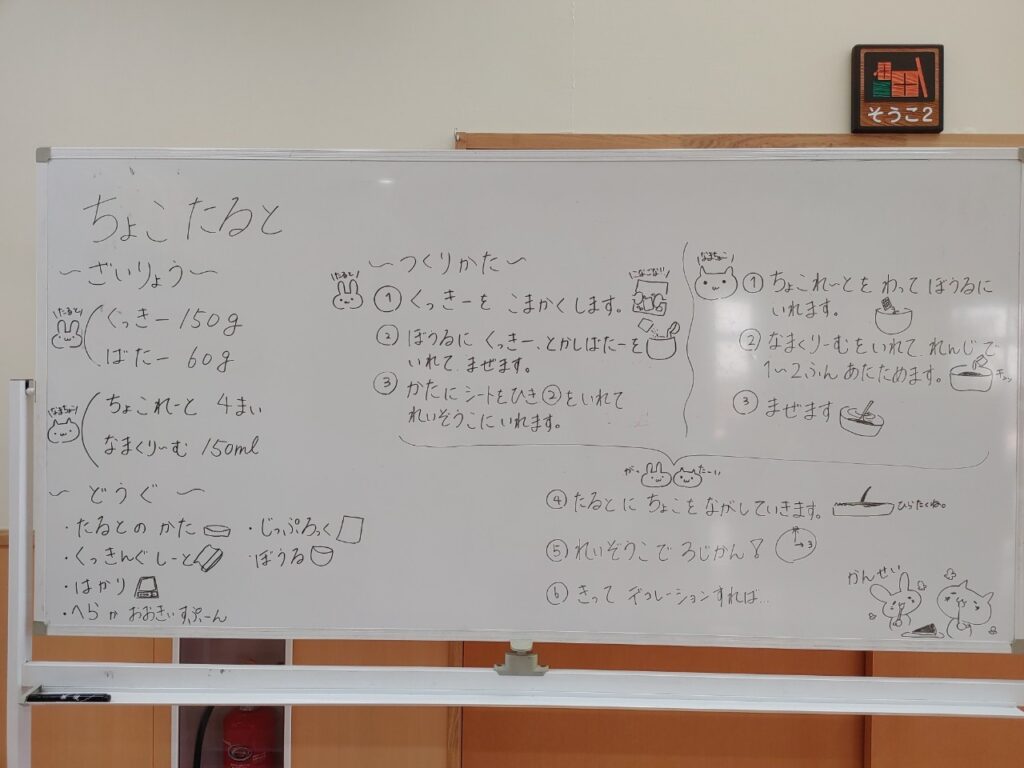 そうこ2
ちょこたると
〜ざいりょう〜
たると
くっきー 150g
ばたー 60g
なまちょこ
ちょこれーと 4まい
なまくりーむ 150ml
〜どうぐ〜
・たるとの かた
・じっぷろっく
・くっきんぐしーと
・ぼうる
・はかり
・へらか おおきいすぷーん
〜つくりかた〜
たると
① くっきーを こまかくします。
こなごな!!
② ぼうるに くっきー、とかしばたーを
いれて まぜます。
③ かたに シートをひき ②をいれて
れいぞうこにいれます。
なまちょこ
① ちょこれーとを わって ぼうるに
いれます。
② なまくりーむをいれて れんじで
1〜2ふん あたためます。
③ まぜます
がったーい
④ たるとに ちょこを ながしていきます。
ひらたくね。
⑤ れいぞうこで 3じかん!
3
⑥ きって デコレーションすれば…
かんせい